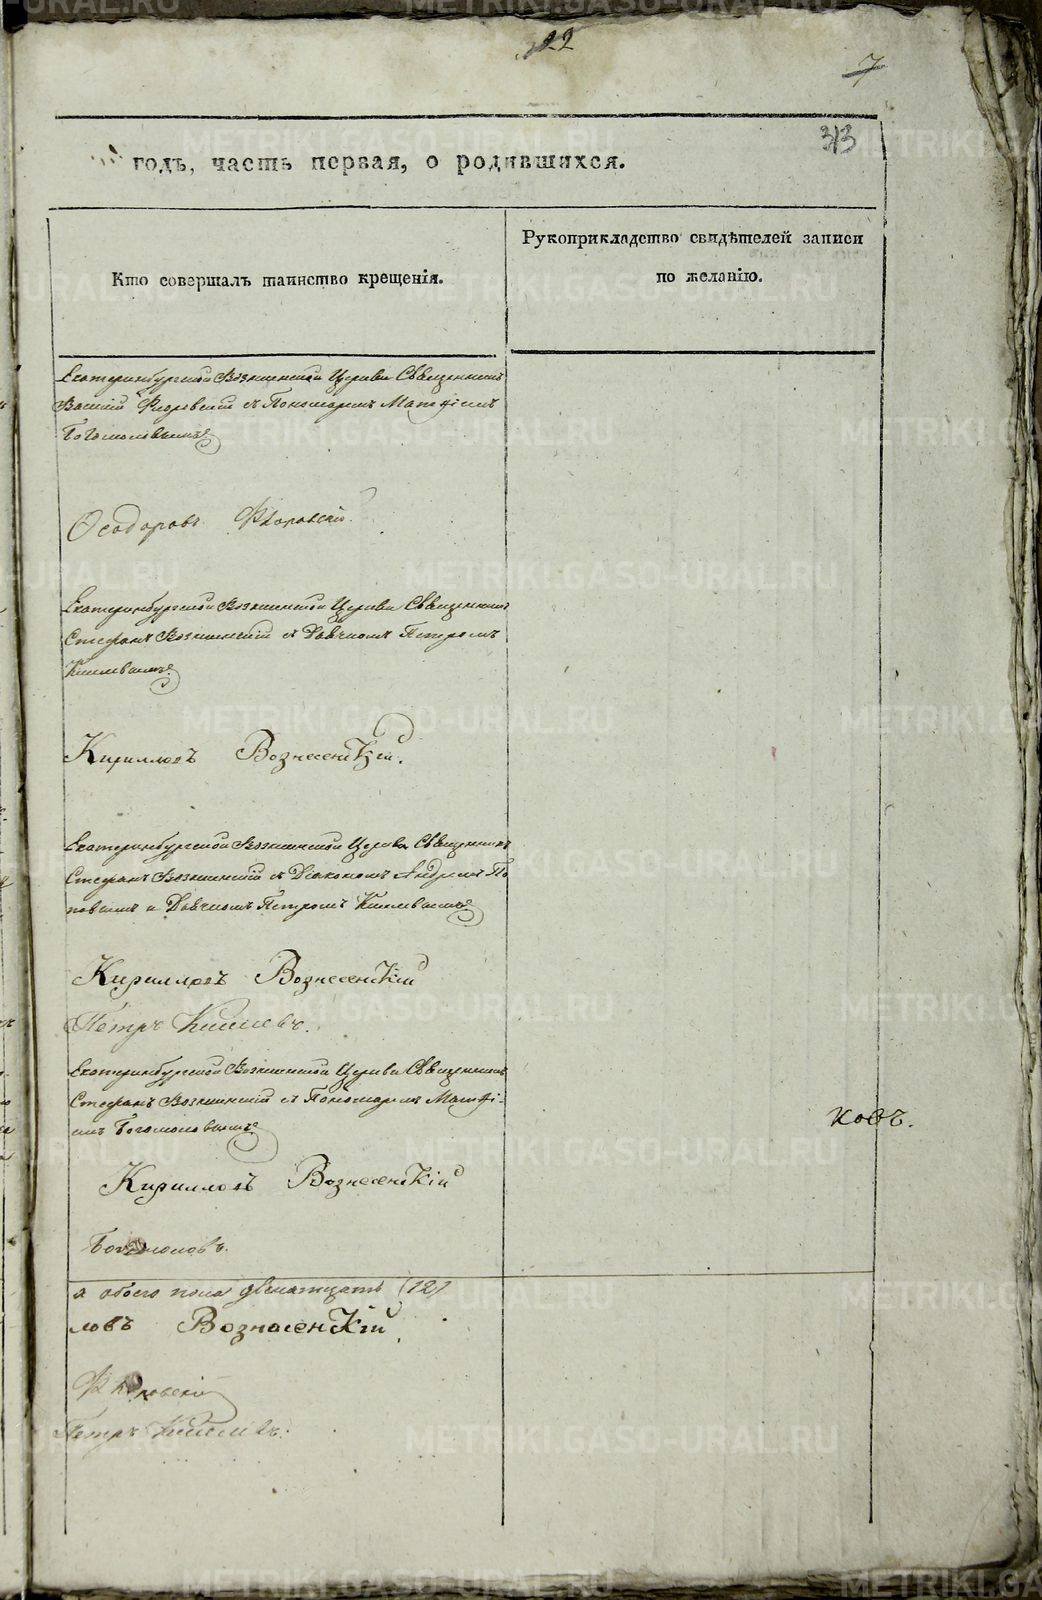 22
7
313
годъ, часть первая, о родившихся.
Кто совершалъ таинство крещенія.
Рукоприкладство свидѣтелей записи
по желанію.
Екатеринбургской Вознесенской Церкви Священникъ
Василій Флоровскій съ Пономаремъ Матѳіемъ
Богомоловымъ
Ѳеодоровъ Флоровскій
Екатеринбургской Вознесенской Церкви Священникъ
Стефанъ Вознесенскій съ Дьячкомъ Петромъ
Кирилловъ Вознесенскій.
Екатеринбургской Вознесенской Церкви Священникъ
Стефанъ Вознесенскій съ Діакономъ Андреемъ По
повымъ и Дьячкомъ Петромъ
Кирилловъ Вознесенскій
Петръ
Екатеринбургской Вознесенской Церкви Священникъ
Стефанъ Вознесенскій съ Пономаремъ Матѳі-
емъ Богомоловымъ
ковъ.
Кирилловъ Вознесенскій
Богомоловъ.
а обоего пола двенатцать (12)
ловъ Вознесенскій
Флоровскій
Петръ
METRIKI.GASO-URAL.RU